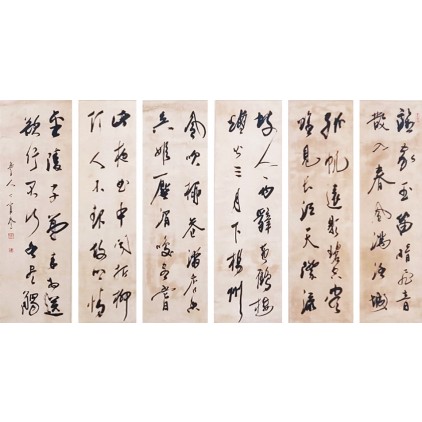 誰家玉笛暗飛聲
散入春風滿洛城
孤帆遠影碧空盡
唯見長江天際流
故人西辭黃鶴樓
煙花三月下揚州
風吹柳花滿店香
吳姬壓酒喚客嘗
此夜曲中聞折柳
何人不起故園情
金陵子弟來相送
欲行不行各盡觴